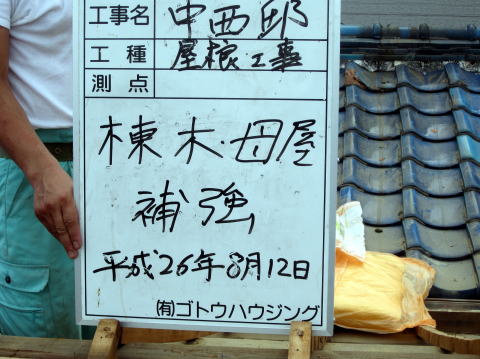 工事名 中西邸
工種 屋根工事
測点
棟木・母屋
補強
平成26年8月12日
(有)ゴトウハウジング